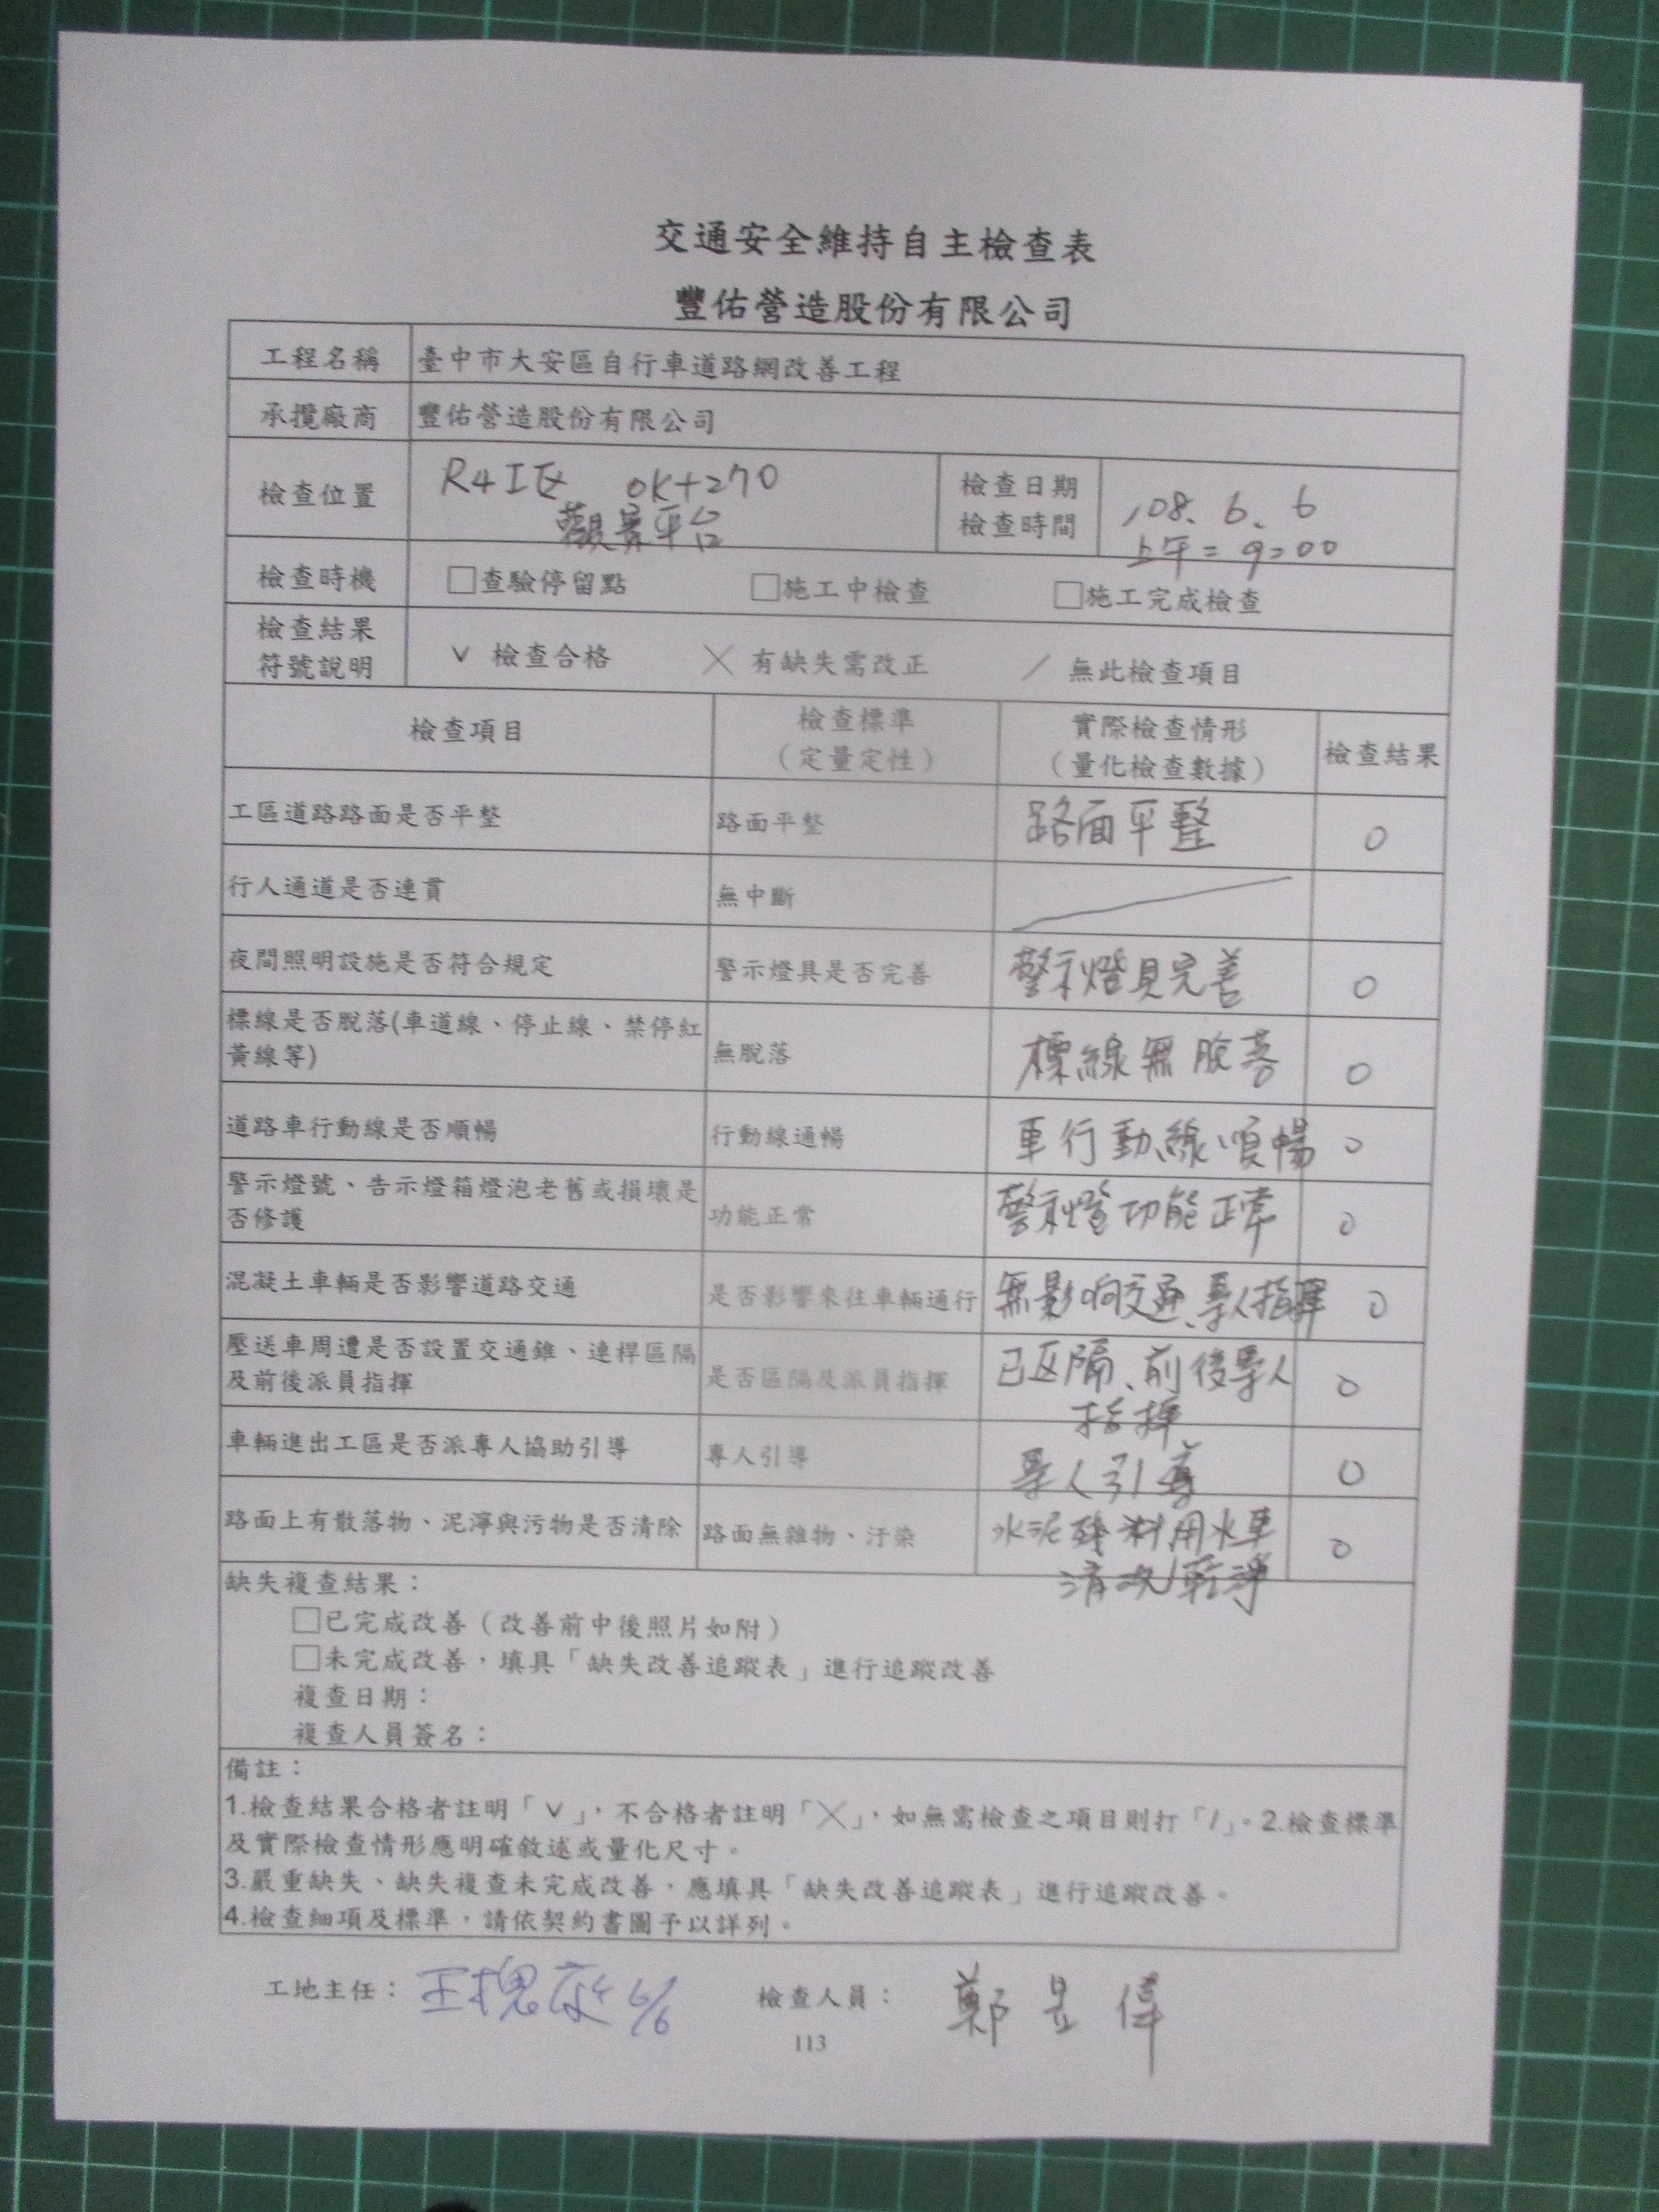 交通安全維持自主檢查表
豐佑營造股份有限公司
工程名稱 臺中市大安區自行車道路網改善工程
承攬廠商 豐佑營造股份有限公司
檢查位置 R4工区 0K+270
觀景平台
檢查日期 108.6.6
檢查時間 上午:9:00
檢查時機 □查驗停留點 □施工中檢查 □施工完成檢查
檢查結果
符號說明 ∨ 檢查合格 ╳ 有缺失需改正 ╱ 無此檢查項目
檢查項目 檢查標準 實際檢查情形 檢查結果
(定量定性) (量化檢查數據)
工區道路路面是否平整 路面平整 路面平整 O
行人通道是否連貫 無中斷 ╱
夜間照明設施是否符合規定 警示燈具是否完善 警示燈具完善 O
標線是否脫落(車道線、停止線、禁停紅 無脫落 標線無脫落 O
黃線等)
道路車行動線是否順暢 行動線通暢 車行動線順暢 O
警示燈號、告示燈箱燈泡老舊或損壞是 功能正常 警示燈功能正常 O
否修護
混凝土車輛是否影響道路交通 是否影響來往車輛通行 無影响交通、專人指揮 O
壓送車周遭是否設置交通錐、連桿區隔 是否區隔及派員指揮 已区隔、前後專人 O
及前後派員指揮 指揮
車輛進出工區是否派專人協助引導 專人引導 專人引導 O
路面上有散落物、泥濘與污物是否清除 路面無雜物、汙染 水泥殘料用水車 O
清洗乾淨
缺失複查結果：
□已完成改善（改善前中後照片如附）
□未完成改善，填具「缺失改善追蹤表」進行追蹤改善
複查日期：
複查人員簽名：
備註：
1.檢查結果合格者註明「∨」，不合格者註明「╳」，如無需檢查之項目則打「/」。2.檢查標準
及實際檢查情形應明確敘述或量化尺寸。
3.嚴重缺失、缺失複查未完成改善，應填具「缺失改善追蹤表」進行追蹤改善。
4.檢查細項及標準，請依契約書圖予以詳列。
工地主任： 王 6/6 檢查人員： 鄭昱偉
113